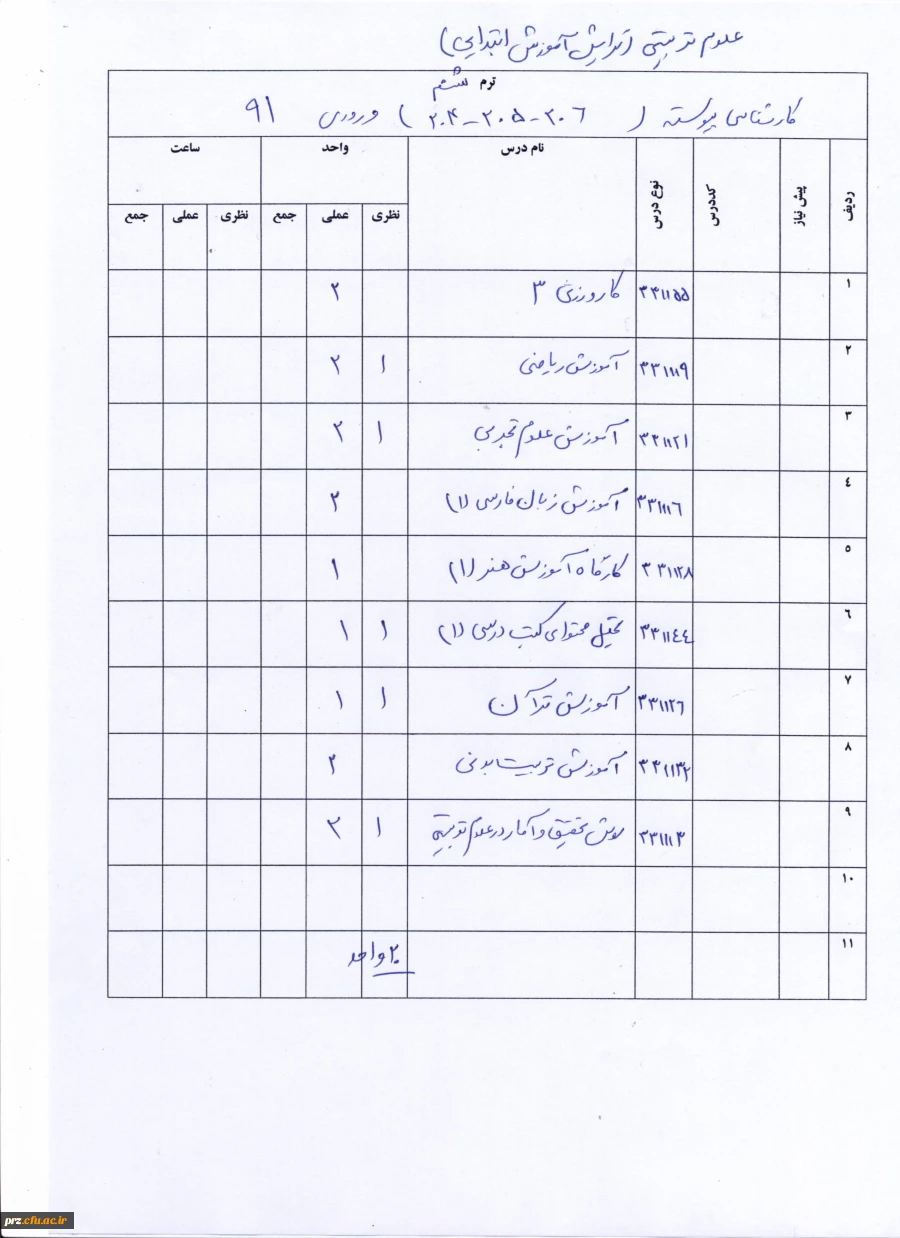 علوم تربیتی (گرایش آموزش ابتدایی)
ترم ششم
کارشناسی پیوسته ( ۲۰۶-۲۰۵-۲۰۴ ) ورودی ۹۱
ردیف پیش نیاز کددرس نوع درس نام درس واحد ساعت
نظری عملی جمع نظری عملی جمع
۱ ۳۳۱۱۵۵ کارورزی ۳ ۲
۲ ۳۳۱۱۱۹ آموزش ریاضی ۱ ۲
۳ ۳۳۱۱۲۱ آموزش علوم تجربی ۱ ۲
٤ ۳۳۱۱۱۶ آموزش زبان فارسی (۱) ۲
٥ ۳۳۱۱۲۸ کارگاه آموزش هنر (۱) ۱
٦ ۳۳۱۱٤٤ تحلیل محتوای کتب درسی (۱) ۱ ۱
۷ ۳۳۱۱۲۶ آموزش قرآن ۱ ۱
۸ ۳۳۱۱۳۲ آموزش تربیت بدنی ۲
۹ ۳۳۱۱۱۳ روش تحقیق و آمار در علوم تربیتی ۱ ۲
۱۰
۱۱ ۲۰ واحد
prz.cfu.ac.ir